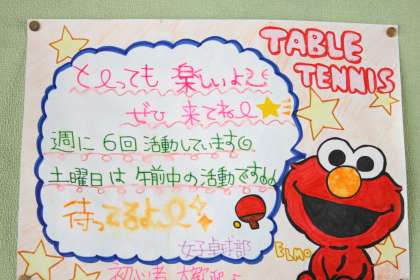 TABLE
TENNIS
とっても 楽しいよ
ぜひ 来てね
週に 6回 活動しています
土曜日は 午前中の活動です
待ってるよ
ELMO
女子卓球部
初心者 大歓迎